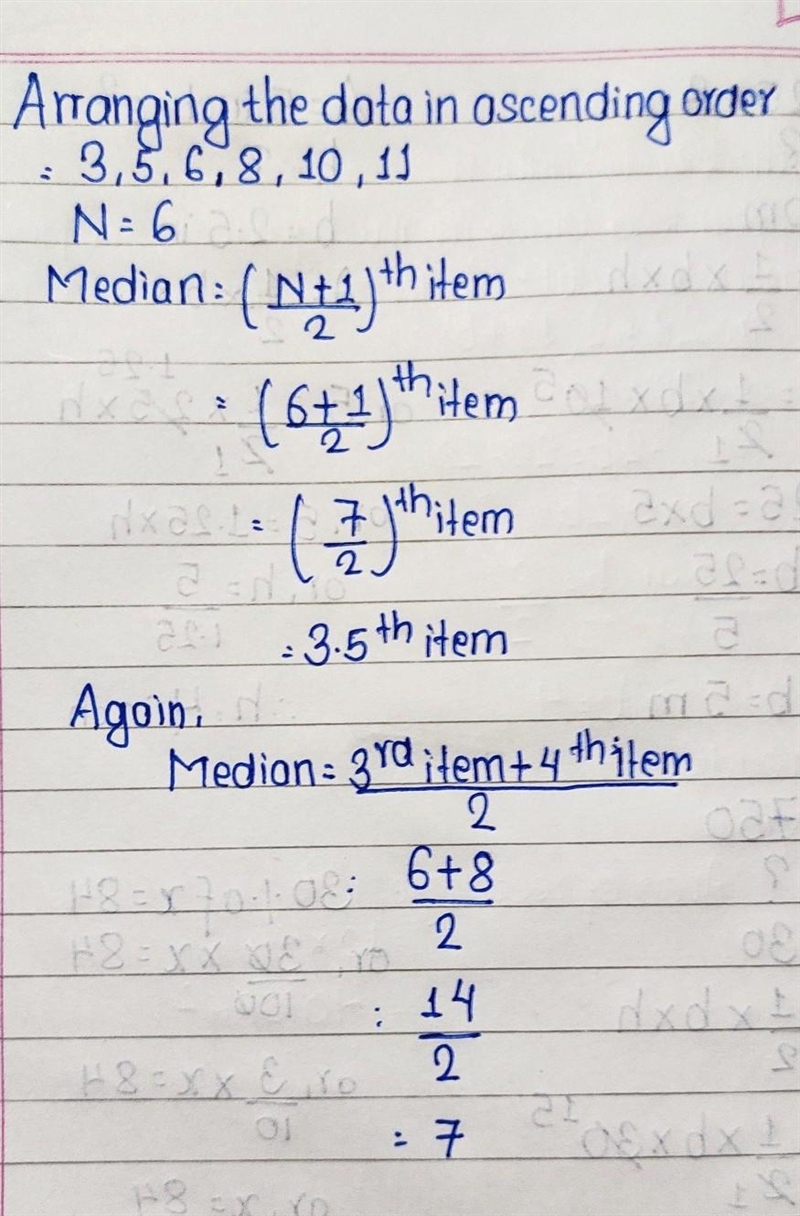 Arranging the data in ascending order
= 3, 5, 6, 8, 10, 11
N = 6
Median = (N+1/2)th item
= (6+1/2)th item
= (7/2)th item
= 3.5th item
Again,
Median = 3rd item + 4th item / 2
= 6+8/2
= 14/2
= 7